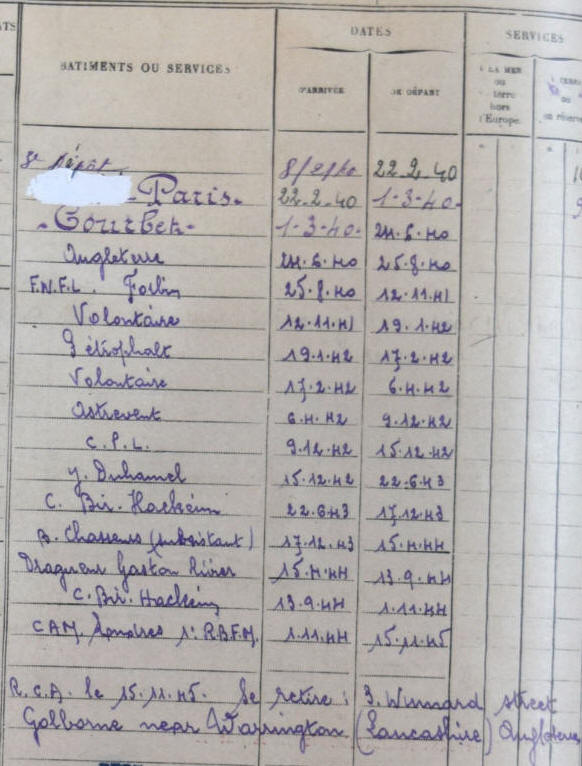 ATS
BATIMENTS OU SERVICES
DATES
SERVICES
D'ARRIVÉE
DE DÉPART
A LA MER
ou
à terre
hors
d'Europe.
ou
en réserve
Dépôt 8/2/40 22.2.40
Paris. 22.2.40 1-3-40.
Courbet. 1-3-40. 24.6.40
Angleterre 24.6.40 25.8.40
F.N.F.L. Forbin 25.8.40 12.11.41
Volontaire 12.11.41 19.1.42
Pétrophalt 19.1.42 17.2.42
Volontaire 17.2.42 6.4.42
6.4.42 9.12.42
C.P.L. 9.12.42 15.12.42
y. Duhamel 15.12.42 22.6.43
C. Bir. Hackeim 22.6.43 17.12.43
B. Chasseurs (subsistant) 17.12.43 15.4.44
Dragueur Gaston Rivier 15.4.44 13.9.44
C. Bir. Hackeim 13.9.44 1.11.44
CAM. Londres 1º R.B.F.M. 1.11.44 15.11.45
R.C.A. le 15.11.45. Se retire : 3. Winnard street
Golborne near Warrington (Lancashire) Angleterre